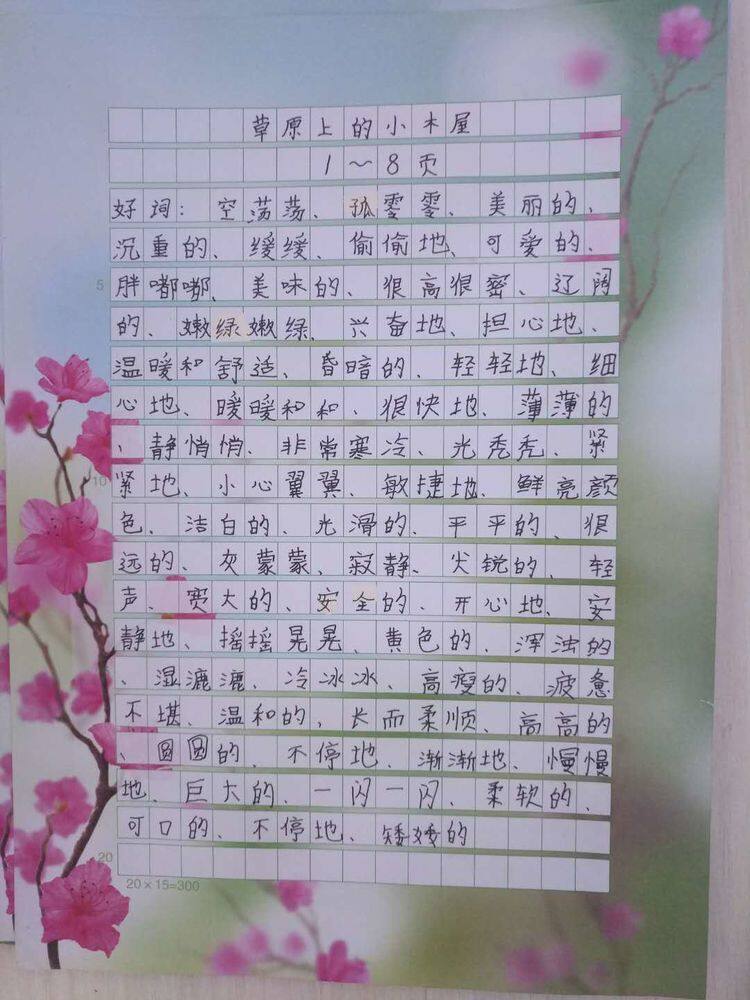 草原上的小木屋
1～8页
好词：空荡荡、孤零零、美丽的、
沉重的、缓缓、偷偷地、可爱的、
5 胖嘟嘟、美味的、很高很密、辽阔
的、嫩绿嫩绿、兴奋地、担心地、
温暖和舒适、昏暗的、轻轻地、细
心地、暖暖和和、很快地、薄薄的
、静悄悄、非常寒冷、光秃秃、紧
10 紧地、小心翼翼、敏捷地、鲜亮颜
色、洁白的、光滑的、平平的、很
远的、灰蒙蒙、寂静、尖锐的、轻
声、宽大的、安全的、开心地、安
静地、摇摇晃晃、黄色的、浑浊的
、湿漉漉、冷冰冰、高瘦的、疲惫
不堪、温和的、长而柔顺、高高的
、圆圆的、不停地、渐渐地、慢慢
地、巨大的、一闪一闪、柔软的、
可口的、不停地、矮矮的
20
20×15=300